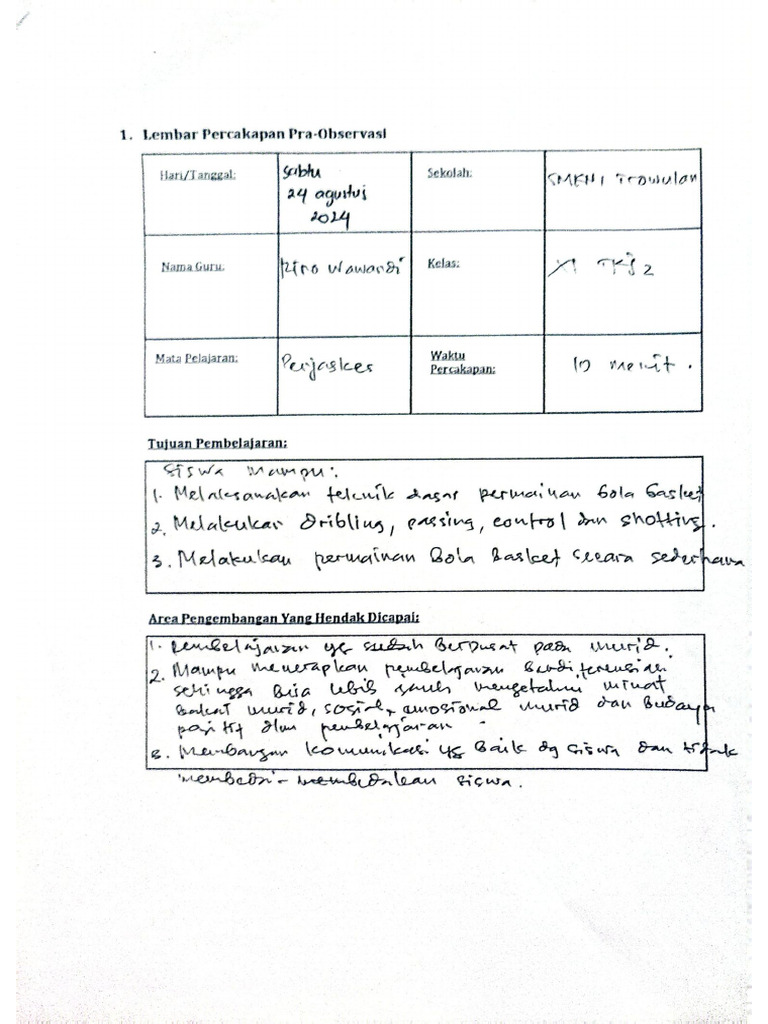 1. Lembar Percakapan Pra-Observasi
Hari/Tanggal:
Sabtu
24 agustus
2024
Sekolah:
SMKN1 Trowulan
Nama Guru.
Wawandi
Kelas:
XI TKJ 2
Mata Pelajaran:
Penjaskes
Waktu
Percakapan:
10 menit.
Tujuan Pembelajaran:
Siswa Mampu:
1. Melaksanakan teknik dasar permainan bola basket
2. Melakukan dribling, passing, control dan shotting.
3. Melakukan permainan Bola basket secara sederhana
Area Pengembangan Yang Hendak Dicapai:
1. Pembelajaran yg sudah Berpusat pada murid.
2. Mampu menerapkan pembelajaran Berdiferensiasi
sehingga Bisa lebih jauh mengetahui minat
Bakat murid, sosial, emosional murid dan Budaya
positif dlm pembelajaran
3. Membangun komunikasi yg Baik dg siswa dan tidak
membeda-membedakan siswa.